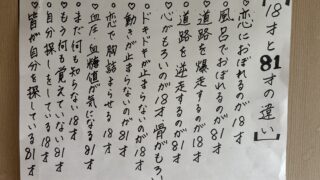 【18才と81才の違い】
♡恋におぼれるのが18才
♡風呂でおぼれるのが81才
♡道路を爆走するのが18才
♡道路を逆走するのが81才
♡心がもろいのが18才 骨がもろい
♡ドキドキが止まらないのが18才
♡動きが止まらないのが81才
♡恋で胸詰まらせる18才
♡血圧・血糖値が気になる81才
♡まだ何も知らない18才
♡もう何も覚えていない81才
♡自分探しをしている18才
♡皆が自分を探している81才